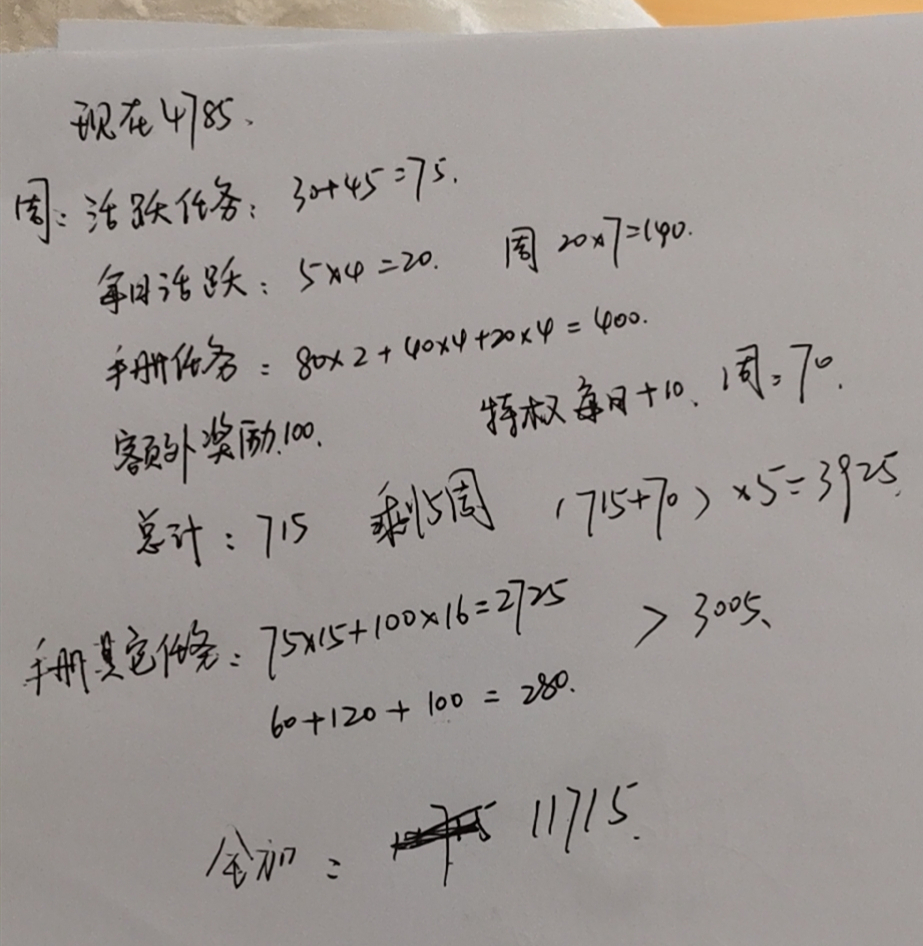 现在4785、
周：活跃任务：30+45=75.
每日活跃：5×4=20. 周 20×7=140.
手册任务：80×2+40×4+20×4=400.
额外奖励.100. 特权每日+10、1周：70.
总计：715 剩15周 (715+70)×5=3925.
手册其它任务：75×15+100×16=2725 > 3005、
60+120+100=280.
全加： 11715.